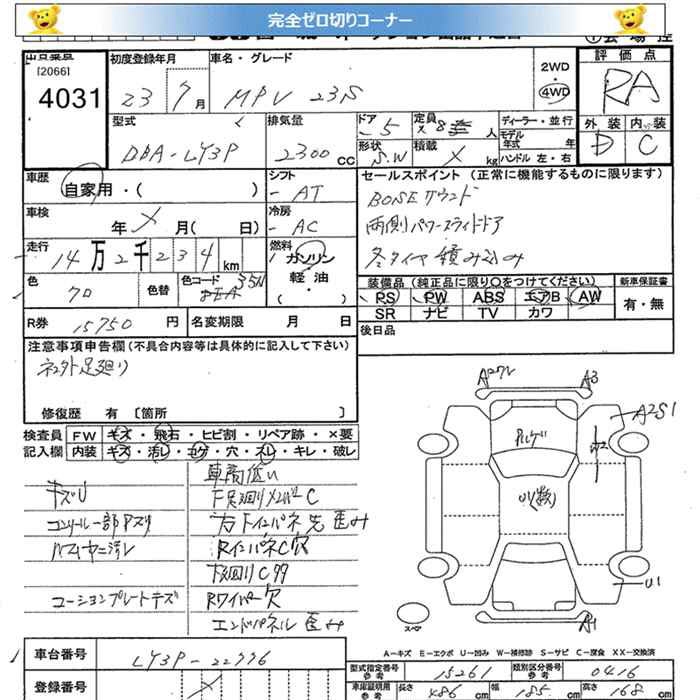 完全ゼロ切りコーナー
出品番号
[2066]
4031
初度登録年月
23 7月
車名・グレード
MPV 23S
2WD
4WD
評価点
RA
型式
DBA-LY3P
排気量
2300 CC
ドア
5
定員
8 人
形状
S.W
積載
X kg
ディーラー・並行
モデル年式 年
ハンドル 左・右
外装 内装
D C
車歴
自家用・( )
シフト
AT
セールスポイント (正常に機能するものに限ります)
BOSEサウンド
両側パワースライドドア
冬タイヤ積み込み
車検
年 X 月( 日)
冷房
AC
走行
14万2千234km
燃料
ガソリン
軽油
( ・ )
色
クロ
色替
色コード
35N
装備品 (純正品に限り○をつけてください)
PS PW ABS エアB AW
SR ナビ TV カワ
新車保証書
有・無
R券
15750 円
名変期限 月 日
後日品
注意事項申告欄 (不具合内容等は具体的に記入して下さい)
修復歴 有 [箇所 ]
検査員記入欄
FW キズ・飛石・ヒビ割・リペア跡・×要
内装 キズ・汚レ・コゲ・穴・スレ・キレ・破レ
キズU
車高低い
コーションプレートキズ
Rインパネ C穴
下廻りC
Rワイパー穴
エンドパネル歪み
A3
A2S1
U1
A1
スペア
A-キズ E-エクボ U-凹み W-補修跡 S-サビ C-腐食 XX-交換済
車台番号
LY3P-
登録番号
型式指定番号 参考
15261
類別区分番号 参考
0416
車庫証明用 参考
長さ 486 cm
幅 185 cm
高さ 168 cm